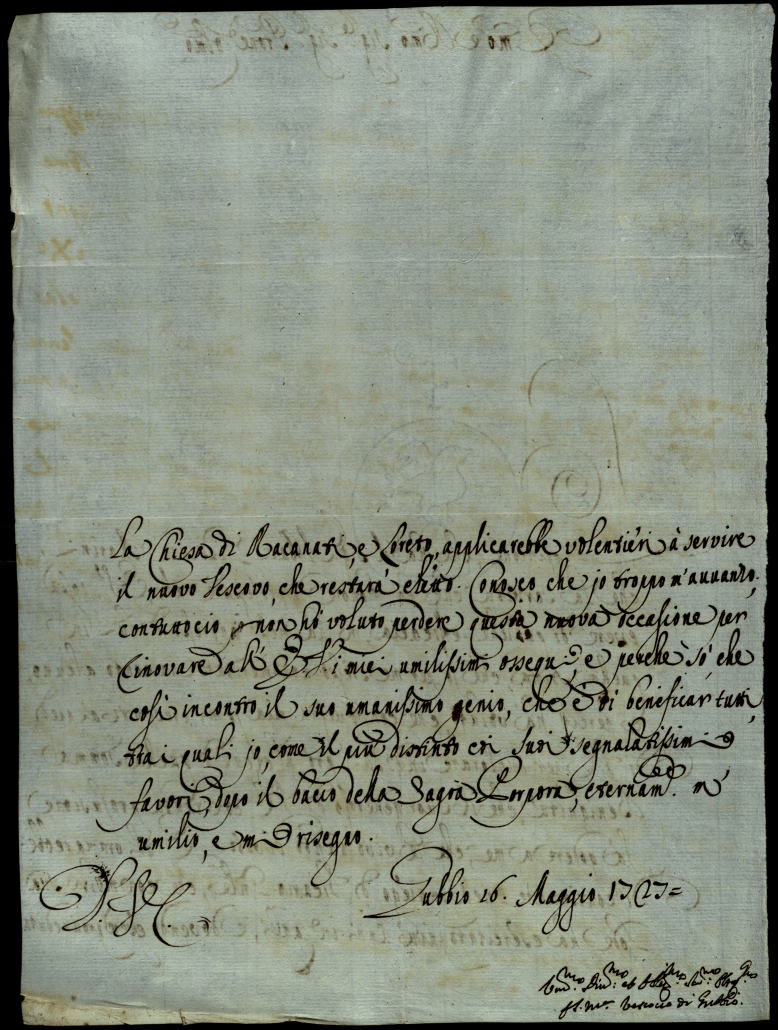 La Chiesa di Racanati, e Loreto, applicarebbe volentieri à servire
il nuovo Vescovo, che restarà eletto. Conosco, che jo troppo m'auuanzo.
contuttociò non hò voluto perdere questa nuova occasione per
rinovare all' i miei umilissimi ossequi, e perche sò, che
così incontro il suo umanissimo genio, che è di beneficar tutti,
trà i quali jo, come il più distinto ne suoi segnalatissimi
favori, dopo il bacio della Sagra Porpora, eternam.te m'
umilio, e mi rasegno.
Gubbio 26. Maggio 1727=
Vescovo di Gubbio.